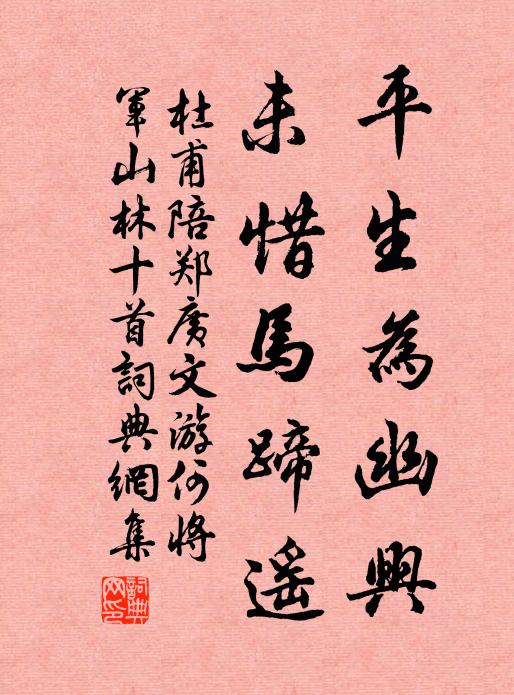 平生為幽興
未惜馬蹄遥
杜甫陪郑廣文游何將
軍山林十首詞典網集
詞典網印